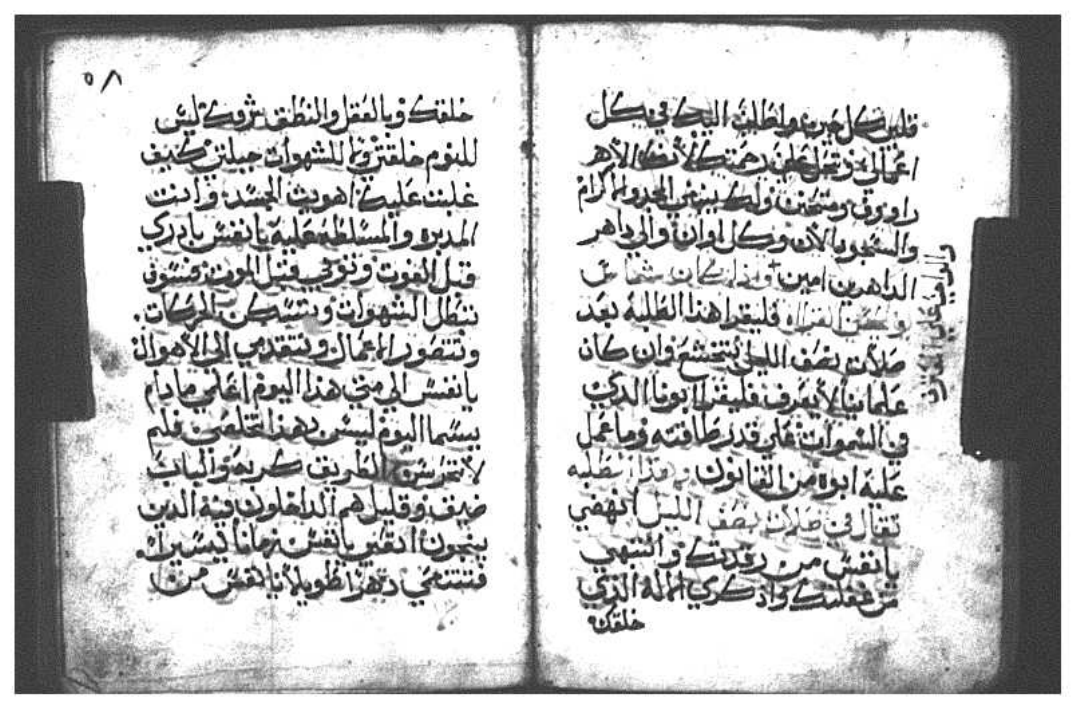 اعمالي
راووف ومتحنن ولك ينبغي المجد والاكرام
والسجود الان وكل اوان والي داهر
الداهرين امين واذا كان شماس
فليقرا هذا الطلبه بعد
صلات نصف الليل بتخشع وان كان
علمانيا لا يعرف فليقرا ابونا الدي
في السموات علي قدر طاقته وما عمل
عليه ابوه من القانون
تقال في صلات نصف الليل انهضي
يا نفس من رقدتك وانتبهي
من غفلتك واذكري الاله الذي
خلقك
٥٨
خلقك وبالعقل والنطق شرفك ليس
للنوم خلقتي ولا للشهوات جبلتي كيف
غلبت عليك اهويت الجسد وانت
المدبره والمسلطه عليه يا نفس بادري
قبل الفوت وتوبي قبل الموت فسوف
تبطل الشهوات وتسكن الحركات
وتتصور الاعمال وتتقدمي الي الاهوال
يا نفس الي متي هذا اليوم اعملي مادام
يسما اليوم ليس بهذا تخلصي فلم
الطريق كربه والباب
ضيق وقليل هم الداخلون فيه الدين
ينجون اتعبي يا نفس زمانا يسيرا
فتتنعمي دهرا طويلا يا نفس من